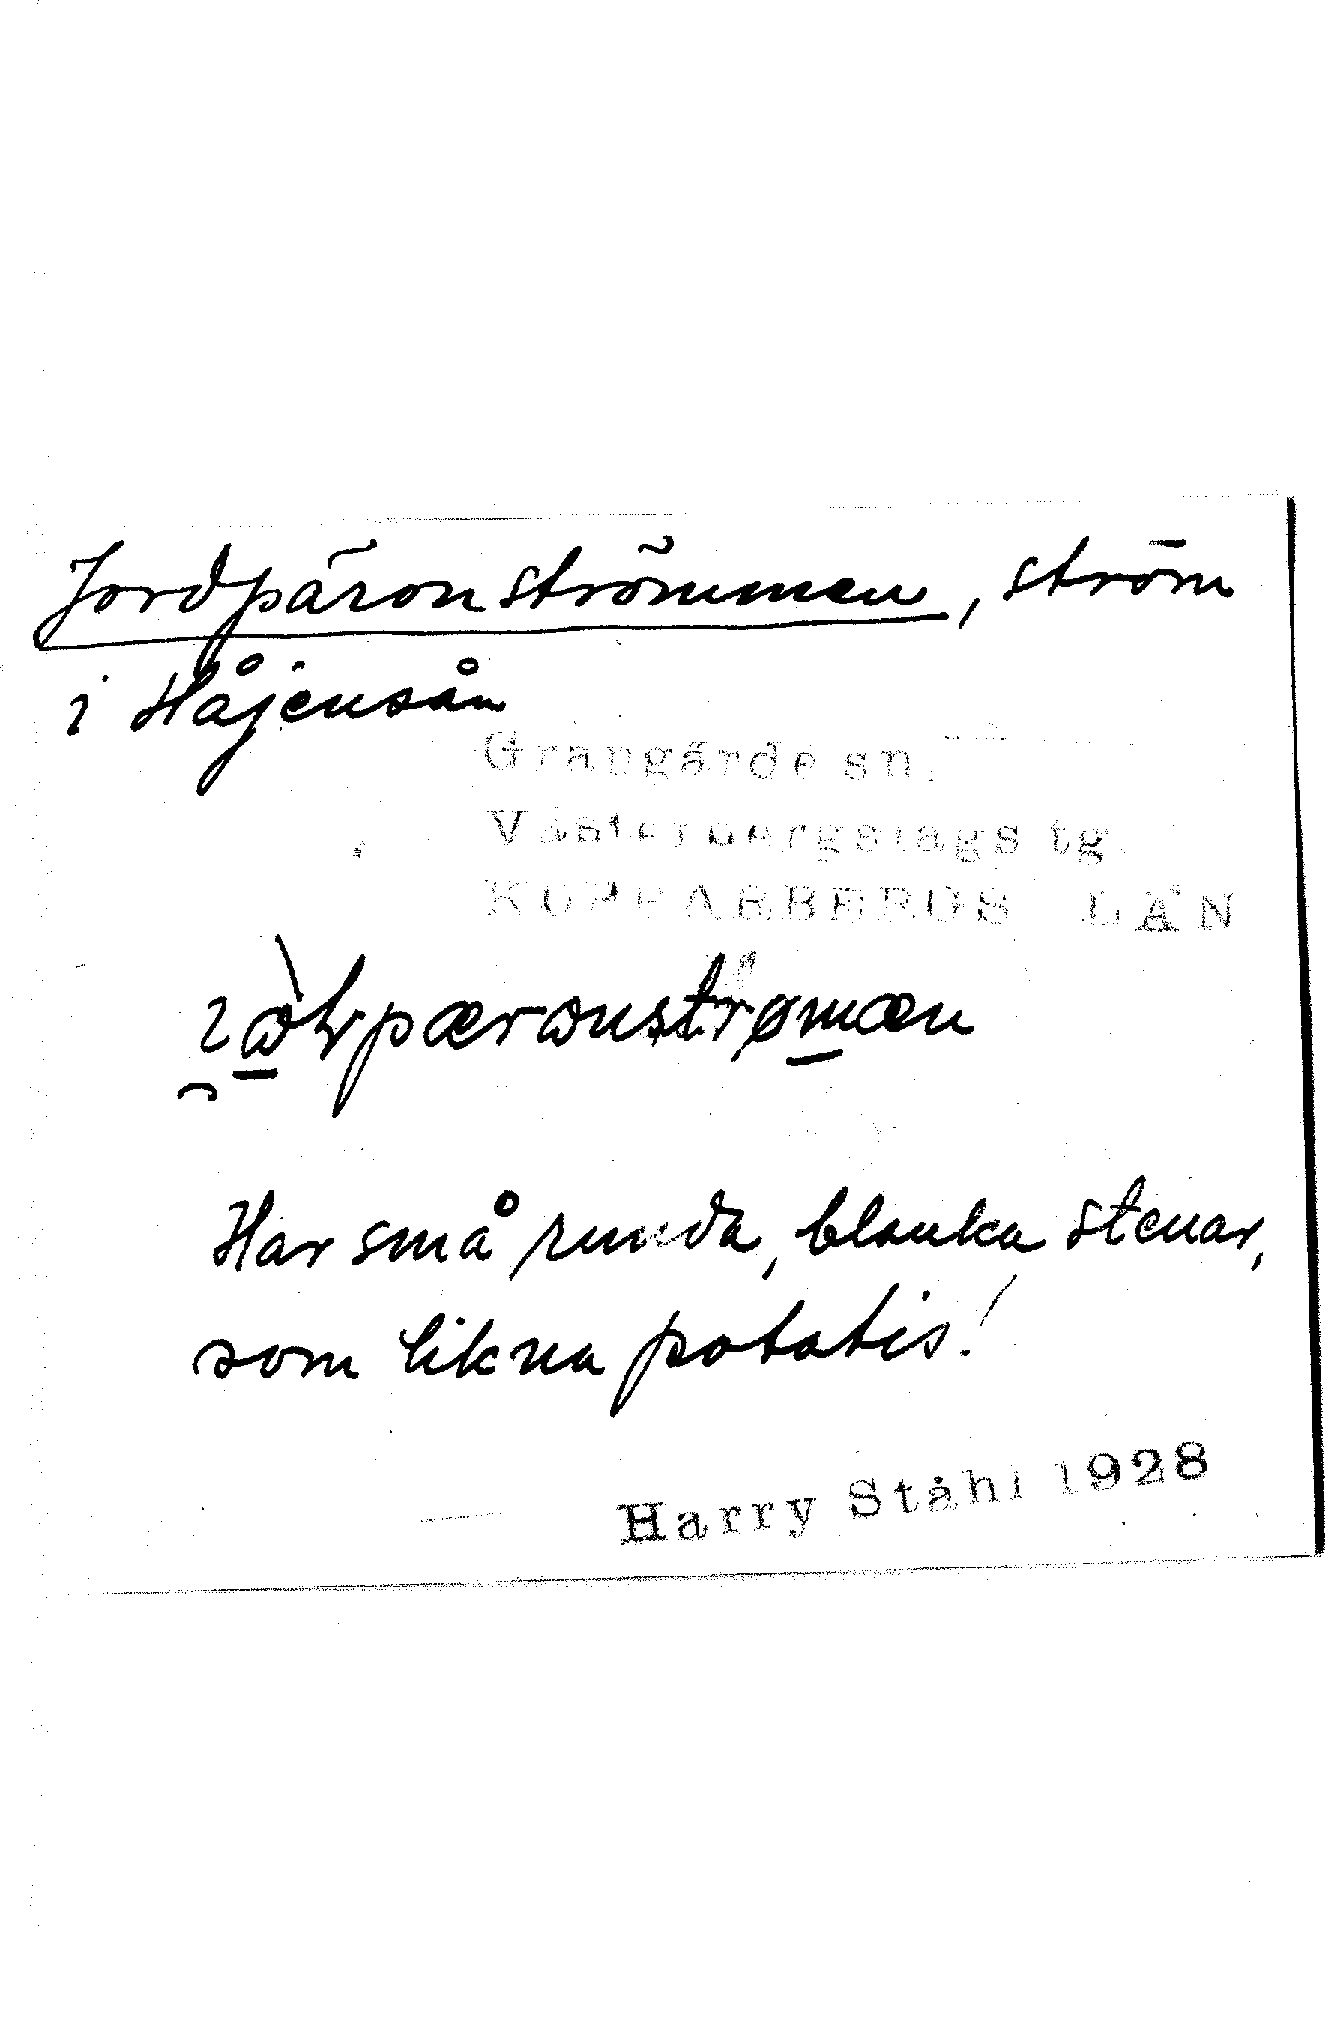 Jordpäronströmmen, ström
i Håjensån
Grangärde sn.
Västerbergslags tg.
KOPPARBERGS LÄN
Har små runda, blanka stenar,
som likna potatis!
Harry Ståhl 1928